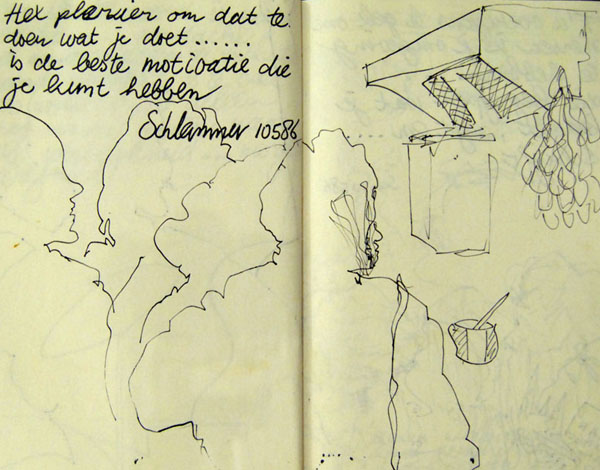 Het plezier om dat te
doen wat je doet......
is de beste motivatie die
je kunt hebben
Schlemmer 10586